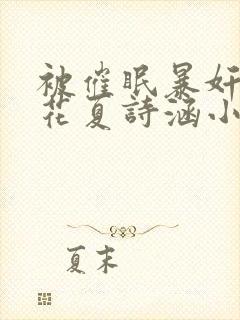 被催眠暴奸
花夏詩涵小
夏末